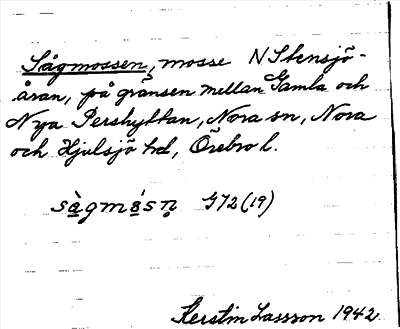 Sågmossen, mosse N Stensjö-
åran, på gränsen mellan Gamla och
Nya Pershyttan, Nora sn, Nora
och Hjulsjö hd, Örebro l.
sàgmåsn G72(19)
Kerstin Larsson 1942